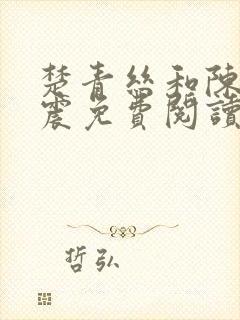 楚青絲和陳
震免費閱讀
哲弘